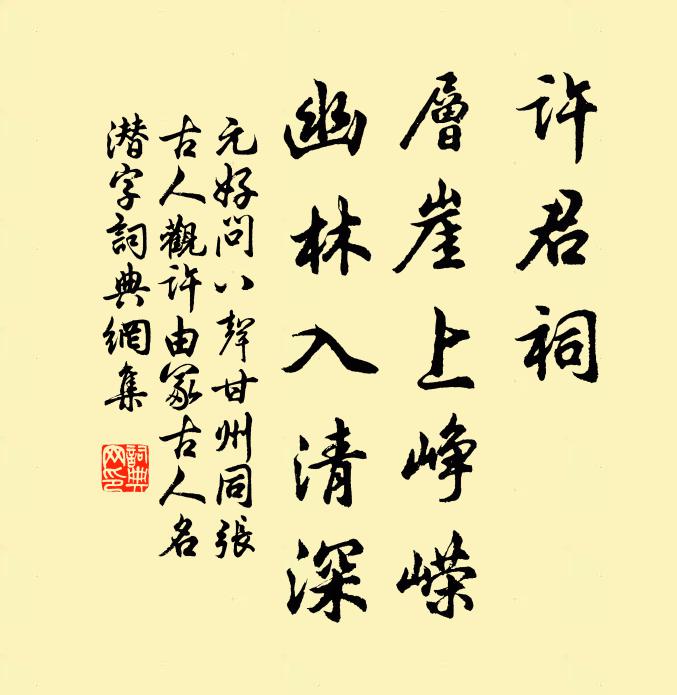 許君祠
層崖上崢嶸
幽林入清深
元好問八聲甘州同張
古人觀許由冢古人名
潛字詞典網集
詞典
网印